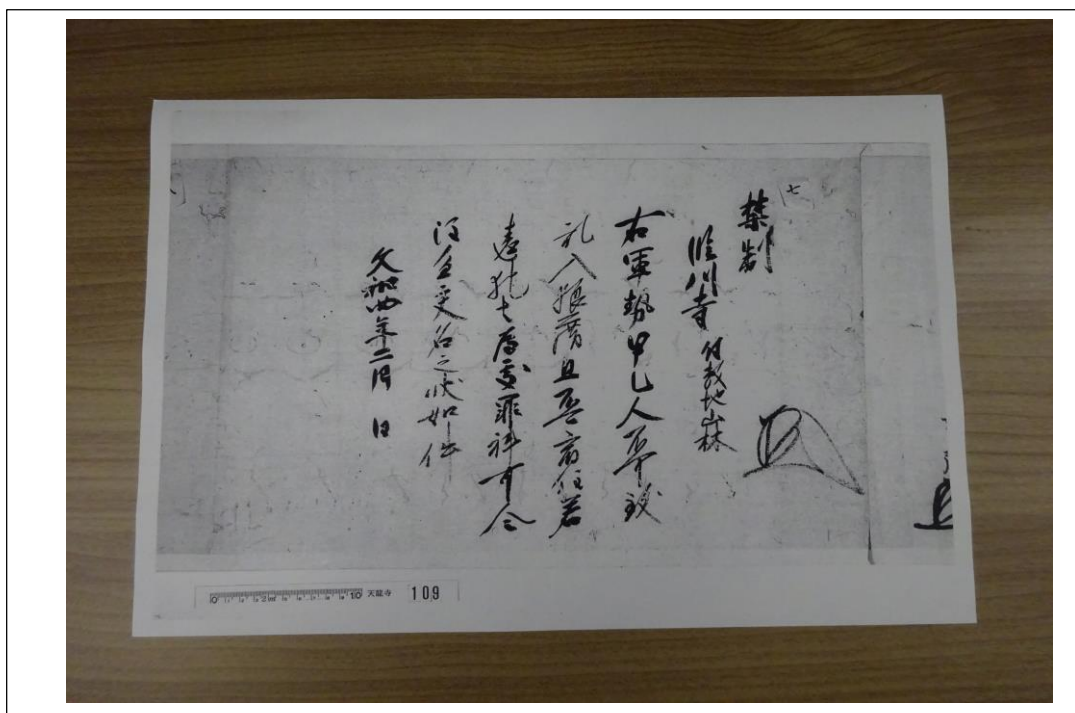 七
禁制
臨川寺付敷地山林
右軍勢甲乙人不可致
乱入狼藉且不寄住若
違犯之者処罪科可令
注文交名之状如件
文和四年二月 日
天龍寺 109